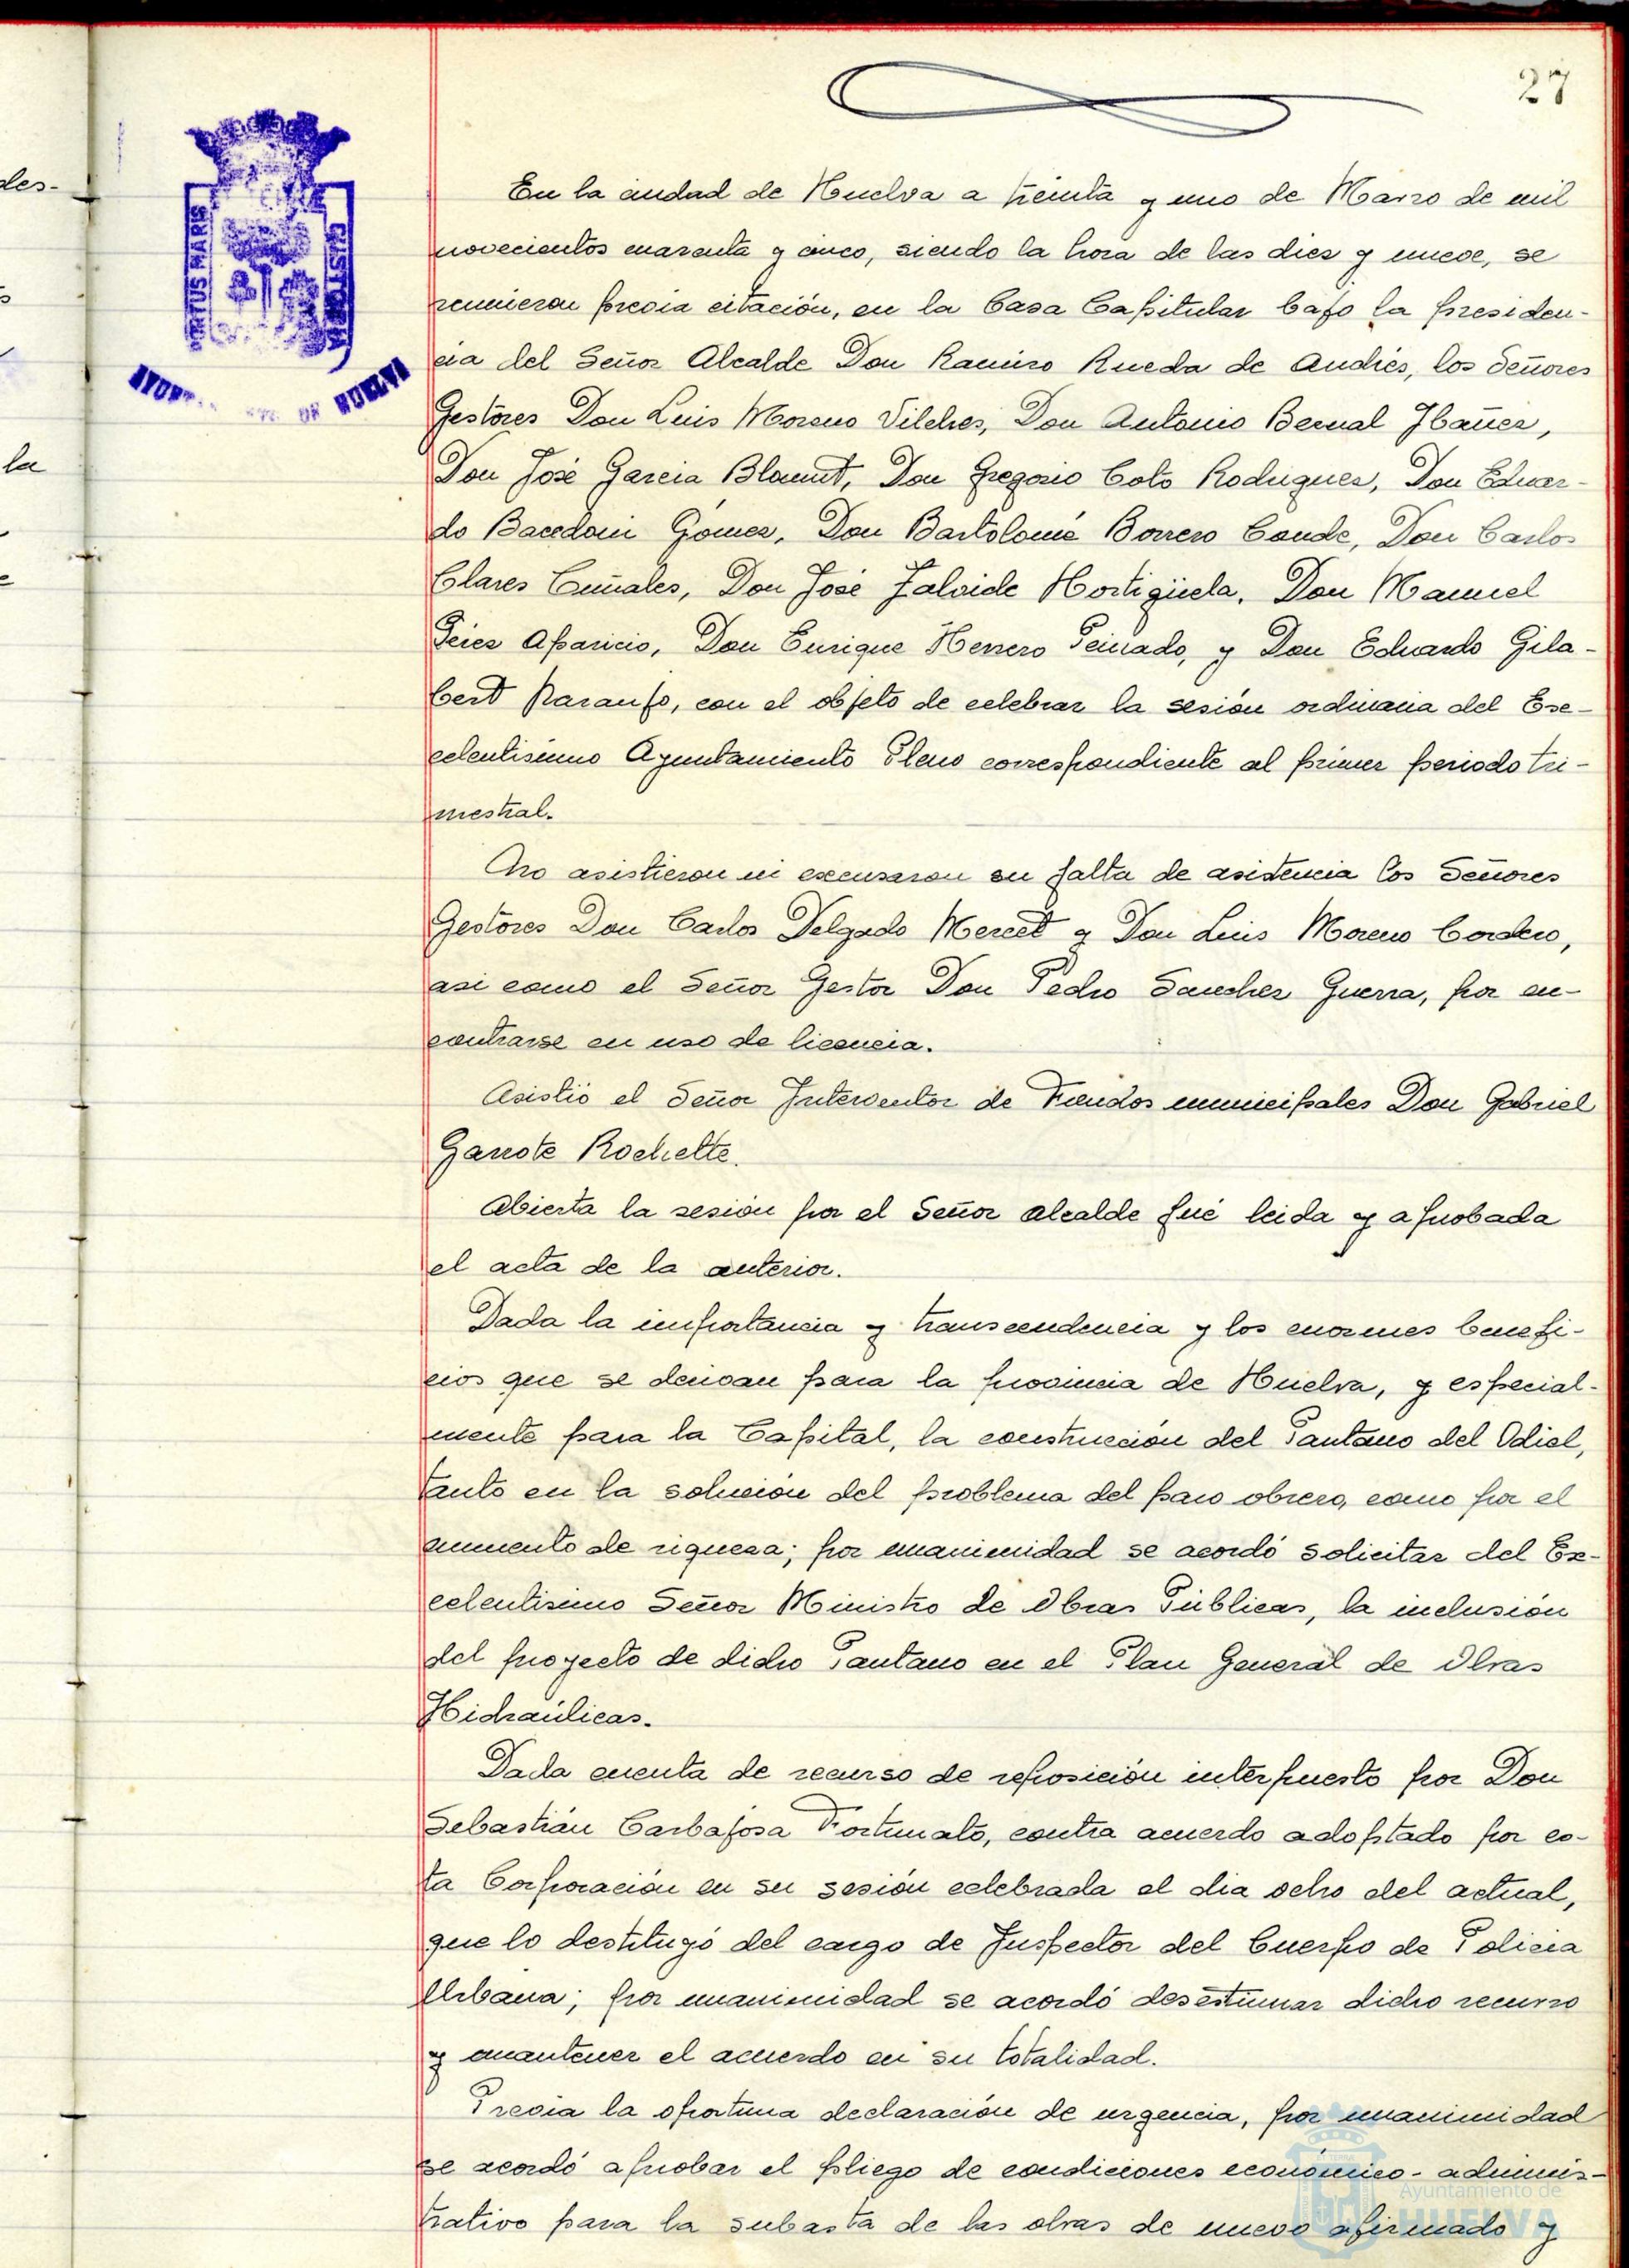 27
des-
la
PORTUS MARIS
CUSTODIA
HUELVA
En la ciudad de Huelva a treinta y uno de Marzo de mil
novecientos cuarenta y cinco, siendo la hora de las diez y nueve, se
reunieron previa citación, en la Casa Capitular bajo la presiden-
cia del Señor Alcalde Don Ramiro Rueda de Andrés, los Señores
Gestores Don Luis Moreno Vilches, Don Antonio Bernal Ibañez,
Don José Garcia Blamut, Don Gregorio Coto Rodriguez, Don Eduar-
do Bacedoni Gómez, Don Bartolomé Borrero Conde, Don Carlos
Clares Cuñales, Don José Jalvide Hortigüela, Don Manuel
Aparicio, Don Enrique Herrero Peinado, y Don Eduardo Gila-
bert Naranjo, con el objeto de celebrar la sesión ordinaria del Exc-
celentisimo Ayuntamiento Pleno correspondiente al primer periodo tri-
mestral.
No asistieron ni excusaron su falta de asistencia los Señores
Gestores Don Carlos Delgado Mercet y Don Luis Moreno Cordero,
asi como el Señor Gestor Don Pedro Sanchez Guerra, por en-
contrarse en uso de licencia.
Asistió el Señor Interventor de Fondos municipales Don Gabriel
Garrote Rochelte.
Abierta la sesión por el Señor Alcalde fué leida y aprobada
el acta de la anterior.
Dada la importancia y transcendencia y los enormes benefi-
cios que se derivan para la provincia de Huelva, y especial-
mente para la Capital, la construcción del Pantano del Odiel,
tanto en la solución del problema del paro obrero, como por el
aumento de riqueza; por unanimidad se acordó solicitar del Ex-
celentisimo Señor Ministro de Obras Públicas, la inclusión
del proyecto de dicho Pantano en el Plan General de Obras
Hidraúlicas.
Dada cuenta de recurso de reposición interpuesto por Don
Sebastián Carbajosa Fortunato, contra acuerdo adoptado por es-
ta Corporación en su sesión celebrada el dia ocho del actual,
que lo destituyó del cargo de Inspector del Cuerpo de Policia
Urbana; por unanimidad se acordó desestimar dicho recurso
y mantener el acuerdo en su totalidad.
Previa la oportuna declaración de urgencia, por unanimidad
se acordó aprobar el pliego de condiciones económico-adminis-
trativo para la subasta de las obras de nuevo afirmado y
Ayuntamiento de
HUELVA